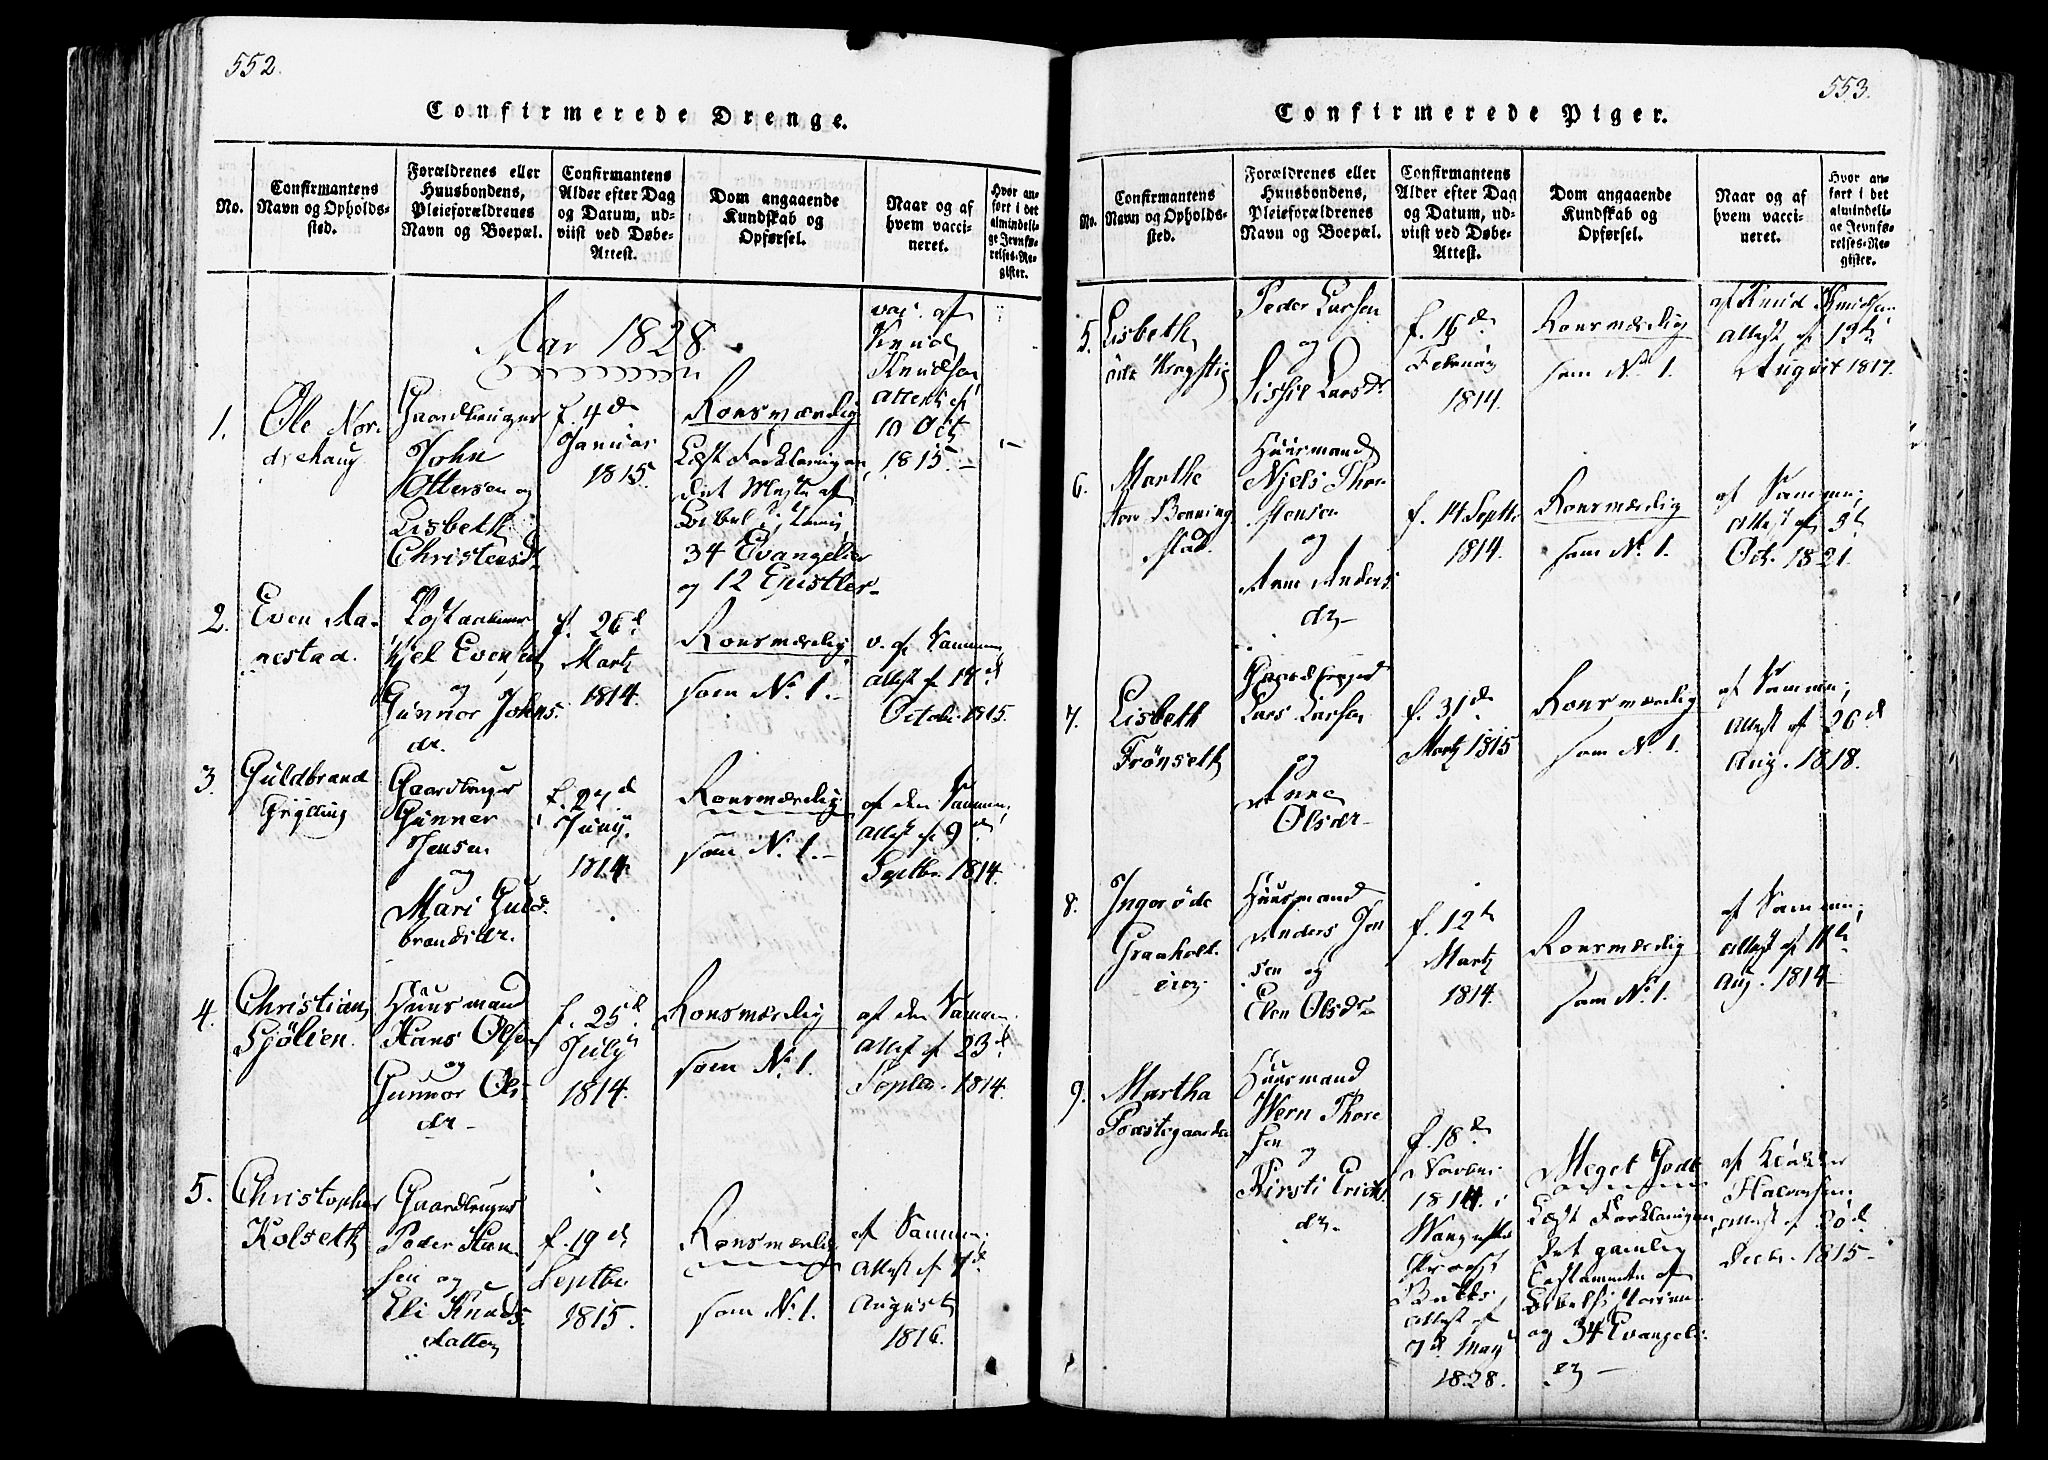 552.
Confirmerede Drenge.
No.
Confirmantens
Navn og Opholds-
sted.
Forældrenes eller
Huusbondens,
Pleieforældrenes
Navn og Boepæl.
Confirmantens
Alder efter Dag
og Datum, ud-
viist ved Døbe-
Attest.
Dom angaaende
Kundskab og
Opførsel.
Naar og af
hvem vacci-
neret.
Hvor an-
ført i det
almindeli-
ge Jevnfø-
relses-Re-
gister.
Aar 1828.
1.
Ole Nor-
drehaug
Gaardbruger
John
Ottersen og
Lisbeth
Christensd
f. 4d
Januar
1815.
Roesværdig
Læst Forklaringen
det Meste af
34 Evangelier
og 12 Epistler
vac. af
Knud
Knudsen
Attest af
10 Oct
1815.
2.
Even Aa-
nestad.
Kjel Evensen
og
Gunnor Johns-
dr.
f. 26d
Martz
1814.
Roesværdig
som No. 1.
v. af Samme,
Attest af 14d
Octobr. 1815.
3.
Guldbrand
Grylling
Gaardbruger
Gunner
Jensen
og
Mari Guld-
brandsdr.
f. 27d
Junij
1814
Roesværdig
som No. 1.
af den Samme,
Attest af 9d
Septbr. 1814.
4.
Christian
Sjølien.
Huusmand
Hans Olsen
og
Gunnor Ols-
dr
f. 25d
July
1814.
Roesværdig
som No. 1.
af den Samme
Attest af 23d
Septbr. 1814.
5.
Christopher
Kolseth
Gaardbruger
Peder Han-
sen og
Eli Knuds-
datter
f. 19d
Septbr
1815.
Roesværdig
som No. 1.
af Samme,
Attest af 7d
August
1816.
553.
Confirmerede Piger.
No.
Confirmantens
Navn og Opholds-
sted.
Forældrenes eller
Huusbondens,
Pleieforældrenes
Navn og Boepæl.
Confirmantens
Alder efter Dag
og Datum, ud-
viist ved Døbe-
Attest.
Dom angaaende
Kundskab og
Opførsel.
Naar og af
hvem vacci-
neret.
Hvor an-
ført i det
almindeli-
ge Jevnfø-
relses-Re-
gister.
5.
Lisbeth
Peder Larsen
og
Sissil Larsdr
f. 16d
Februar
1814.
Roesværdig
som No 1.
af Knud Knudsen,
Attest af 13d
August 1817.
6.
Marthe
Huusmand
Niels Thor-
stensen
og
Anne Anders-
dr
f. 14 Septbr
1814.
Roesværdig
som No. 1.
af Samme;
Attest af 5d
Oct. 1821.
7.
Lisbeth
Frønseth
Gaardbruger
Lars Larsen
og
Anne
Olsdr
f. 31d
Martz 1815
Roesværdig
som No. 1.
af Samme;
Attest af 26d
Aug. 1818.
8.
Huusmand
Anders Jen
sen og
Eben Olsdr
f. 12d
Martz
1814.
Roesværdig
som No 1.
af Samme;
Attest af 11d
Aug. 1814
9.
Martha
Præstegaarden
Huusmand
Wern Thore
sen
og
Kirsti Erichs
dr
f. 18d
Novbr
1814 i
Attest af
7d May
1828.
Meget Godt
Læst Forklaringen
det gamle
Testamente af
og 34 Evangeli
er
af
Halvorsen,
Attest af 30d
Decbr. 1815